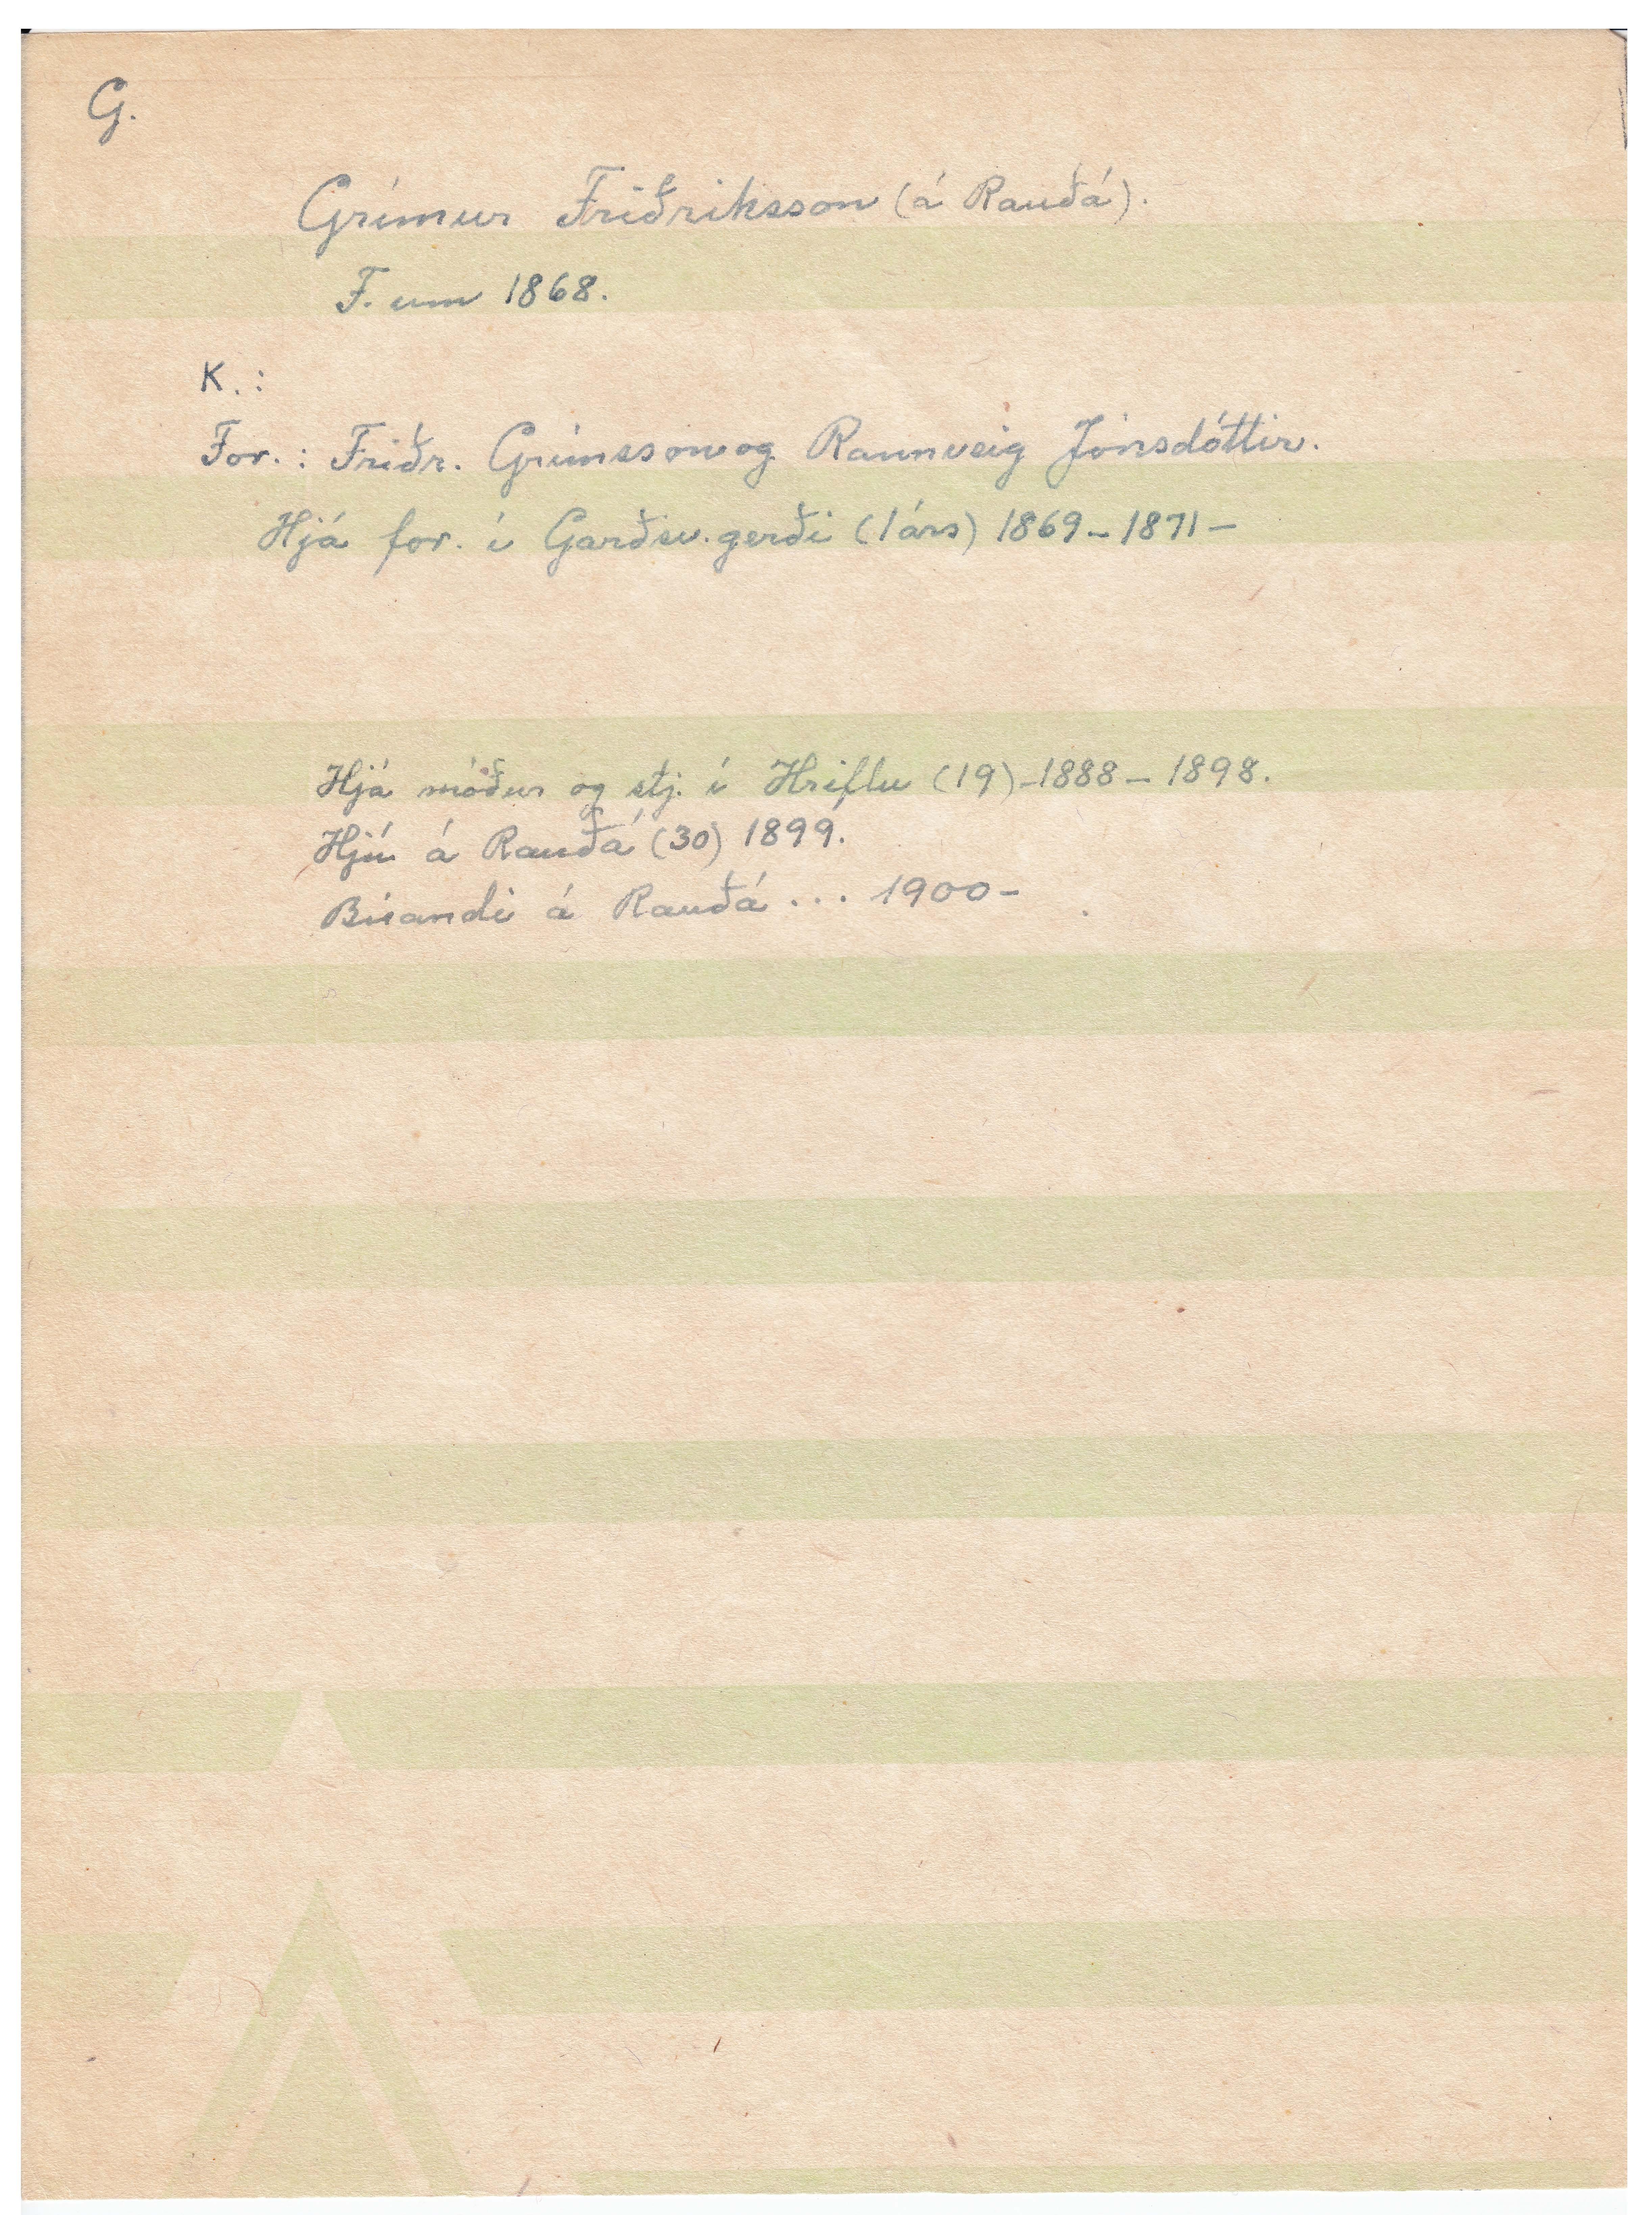 G.
Grímur Friðriksson (á Rauðá).
F. um 1868.
K. :
For. : Friðr. Grímsson og Rannveig Jónsdóttir.
Hjá for. í Garðsv.gerði (1 árs) 1869 – 1871 –
Hjá móður og stj. í Hriflu (19) – 1888 – 1898.
Hjú á Rauðá (30) 1899.
Búandi á Rauðá ... 1900 –